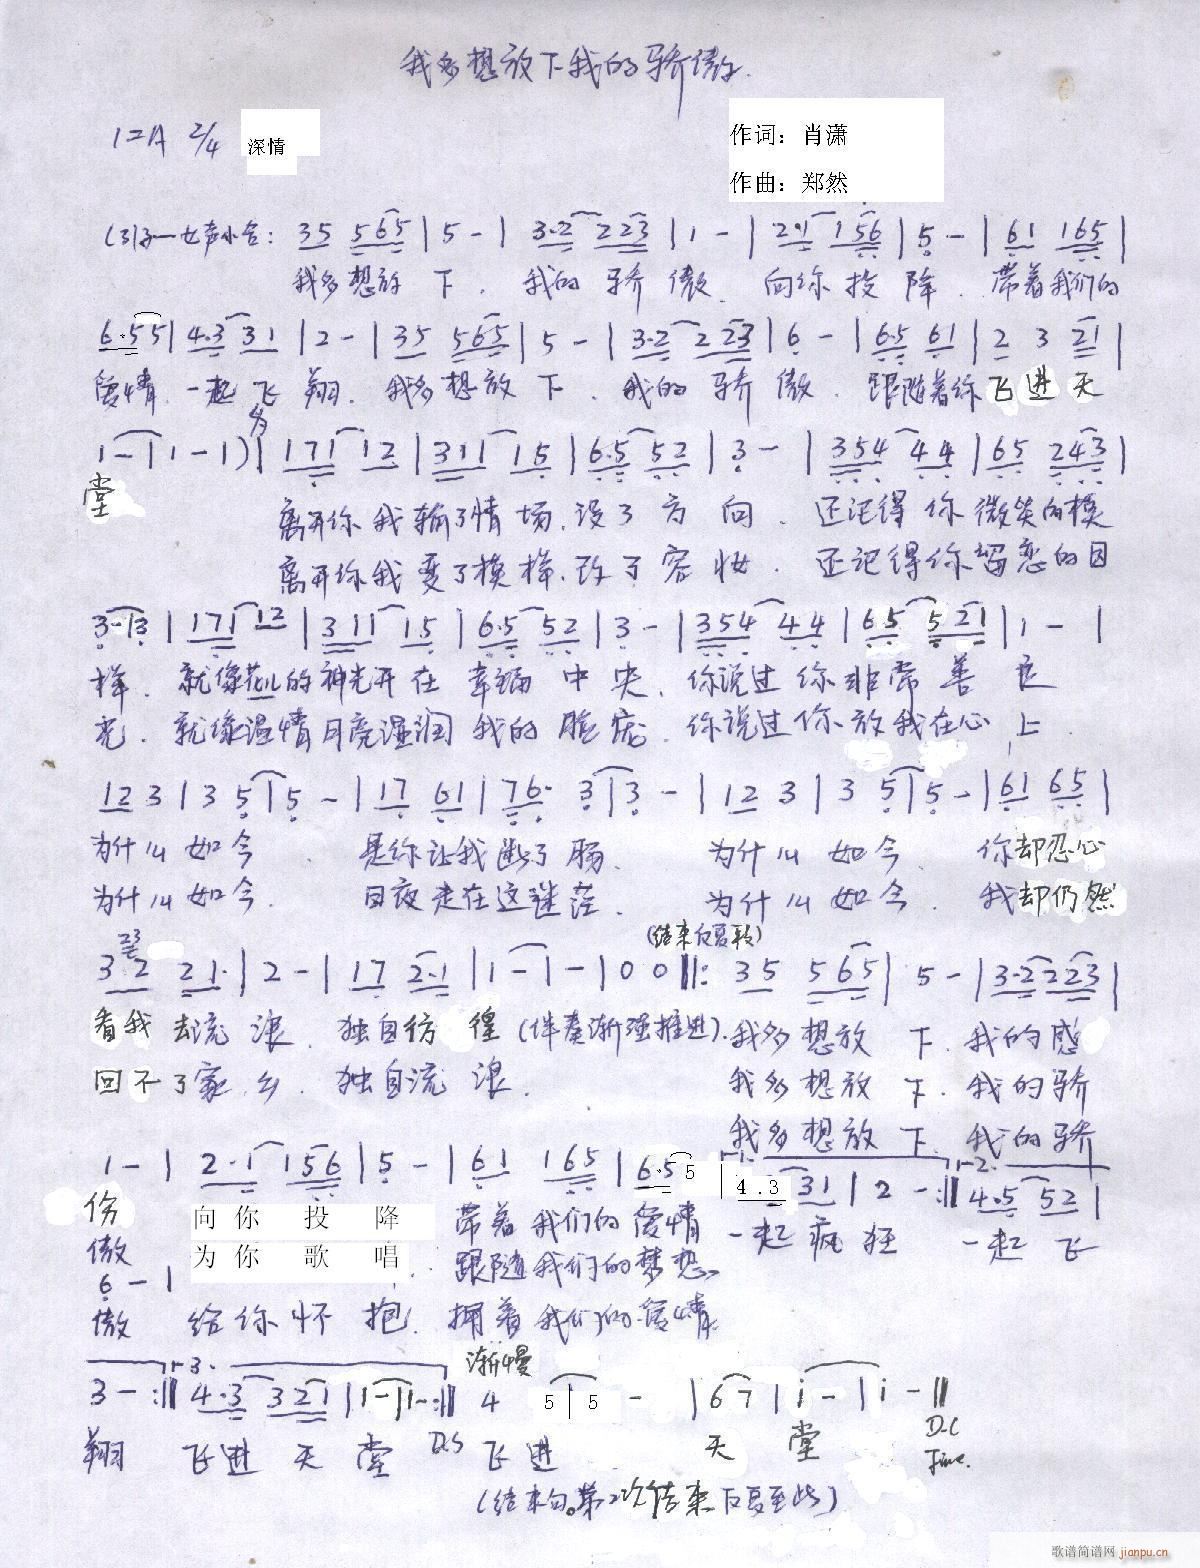 我多想放下我的骄傲
1=A 2/4 深情
作词：肖潇
作曲：郑然
35 565 | 5 - | 3·2 223 | 1 - | 2·1 156 | 5 - | 61 165 |
我多想放 下． 我的 骄 傲． 向你 投 降． 带着我们的
6·55 | 4·3 31 | 2 - | 35 565 | 5 - | 3·2 223 | 6 - | 6·5 61 | 2 3 21 |
爱情．一起 飞 翔．我多想放 下． 我的 骄 傲．跟随着你 飞 进 天
1 - | 1 - 1) | 171 12 | 311 15 | 6·5 52 | 3 - | 354 44 | 65 243 |
堂
离开你我输了情场．没了方向．还记得你微笑的模
离开你我变了模样．改了容妆．还记得你留恋的目
3 - 3 | 171 12 | 311 15 | 6·5 52 | 3 - | 354 44 | 65 521 | 1 - |
样．就像花儿的神光开在幸福中央．你说过你非常善良
光．就像温情月亮湿润我的脸庞．你说过你放我在心上
12 3 | 3 5 | 5 - | 17 61 | 76· 3 | 3 - | 12 3 | 3 5 | 5 - | 61 65 |
为什么如今．是你让我断了肠．为什么如今．你却忍心
为什么如今．日夜走在这迷茫．为什么如今．我却仍然
23
(结束反复)
32 21· | 2 - | 17 2·1 | 1 - | - | 0 0 ‖: 35 565 | 5 - | 3·2 223 |
看我去流浪．独自彷徨 (伴奏渐强推进)．我多想放下．我的感
回不了家乡．独自流浪． 我多想放下．我的骄
我多想放下．我的骄
1 - | 2·1 156 | 5 - | 61 165 | 6·5 5 | 4.3 31 | 2 - :‖ 2. 4·5 52 |
伤 向 你 投 降 带着我们的爱情 一起疯狂 一起飞
傲 为 你 歌 唱 跟随我们的梦想
6 - |
傲 给你怀抱．拥着我们的爱情
渐慢
3 - :‖ 3. 4·3 321 | 1 - | 1 - :‖ 4 5 | 5 - | 67 | i - | i - ‖
翔 飞进天堂 D.S 飞进 天 堂 D.C
Fine.
(结束句。第2次结束反复至此)
歌谱简谱网 jianpu.cn